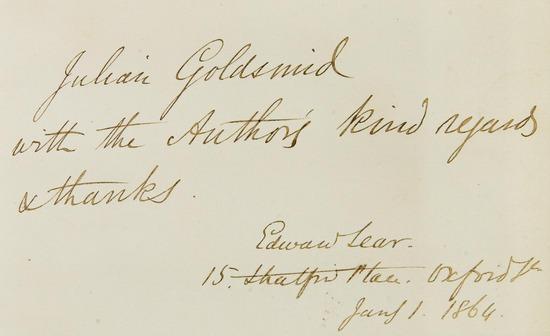 Julian Goldsmid
with the Author's kind regards
& thanks.
Edward Lear.
15. Stratford Place. Oxford St
Jany 1. 1864.